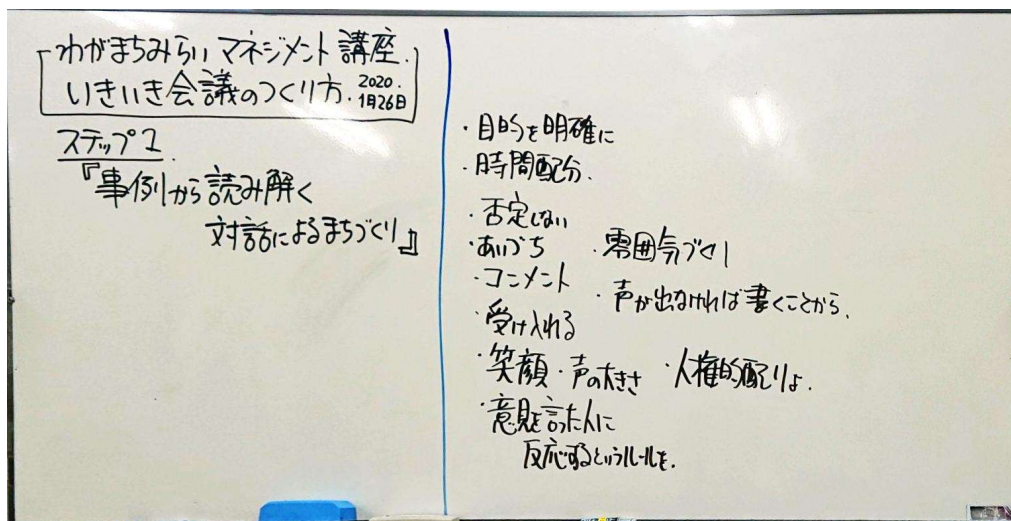 わがまちみらいマネジメント講座.
いきいき会議のつくり方.2020.1月26日
ステップ1.
『事例から読み解く
対話によるまちづくり』
・目的を明確に
・時間配分.
・否定しない
・あいづち
・雰囲気づくり
・コンメント
・声が出なければ書くことから.
・受け入れる
・笑顔・声の大きさ ・人権的配りょ.
・意見を言った人に
反応するというルールを.